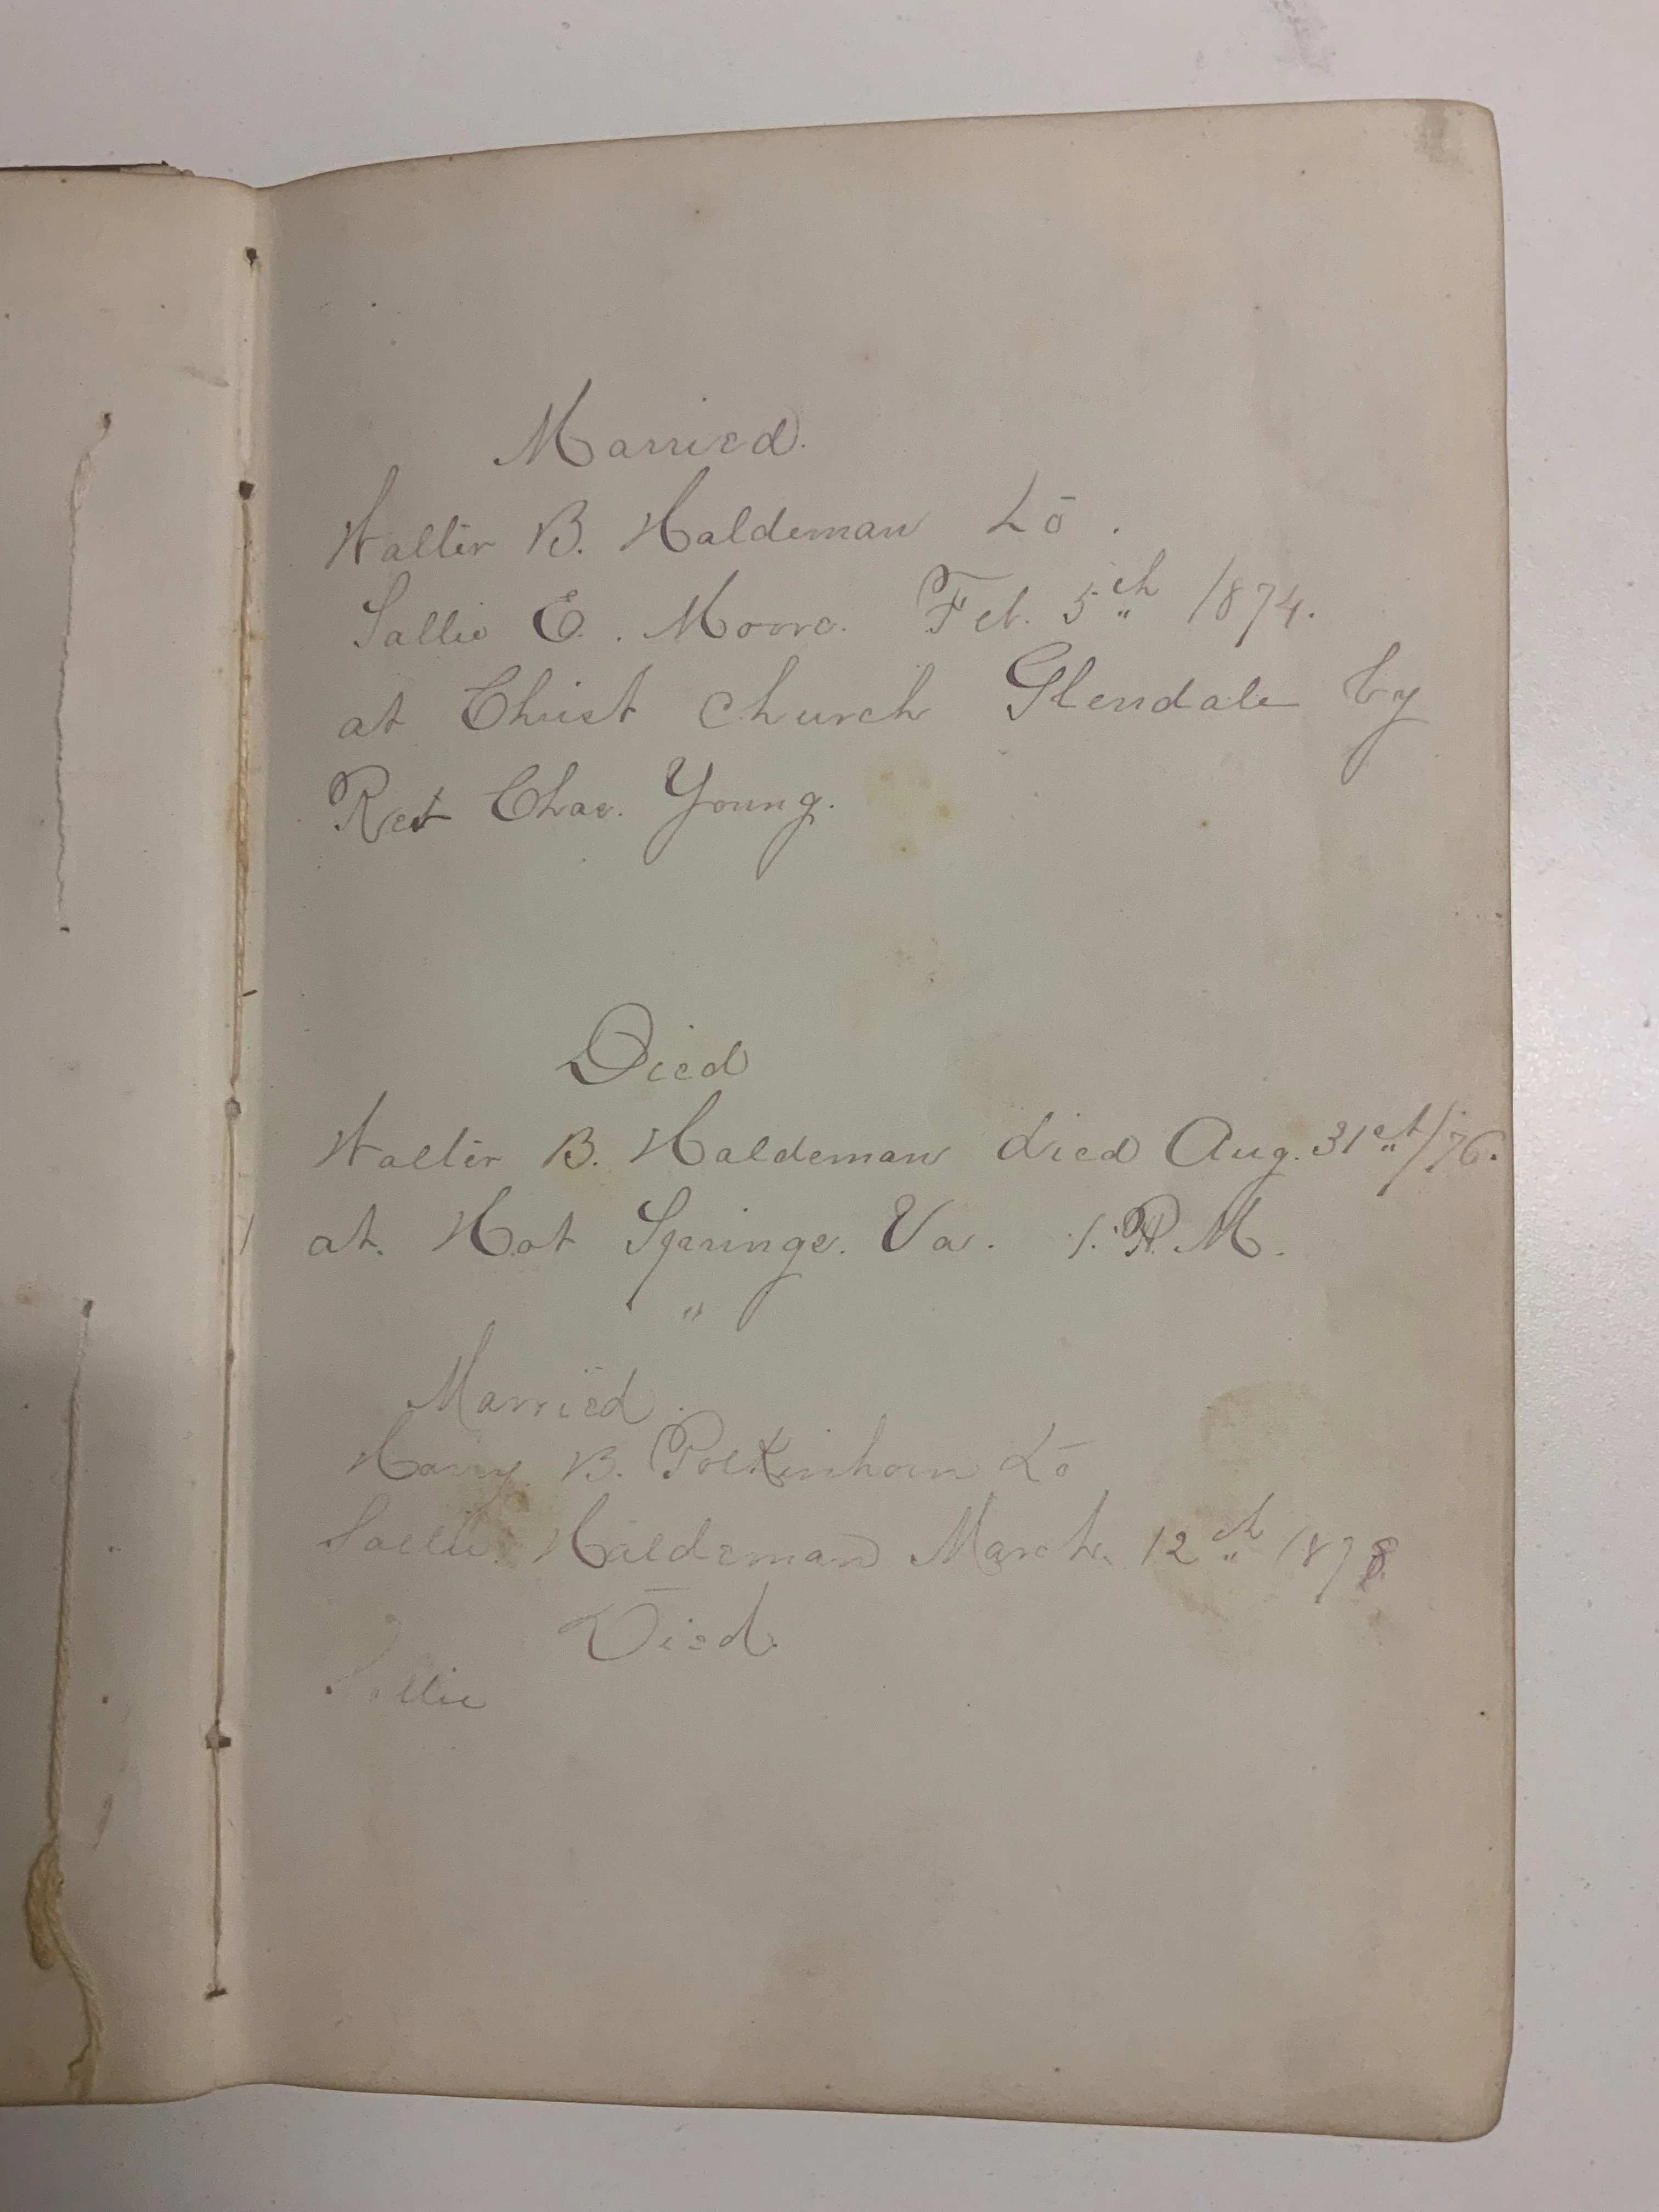 Married.
Walter B. Haldeman to.
Sallie E. Moore. Feb. 5th 1874.
at Christ Church Glendale by
Chas. Young.
Died
Walter B. Haldeman died Aug. 31st/76.
at. Hot Springs. Va. 1. P. M.
Married.
Harry B. Polkinhorn to
Sallie Haldeman March 12th 1878
Died.
Sallie